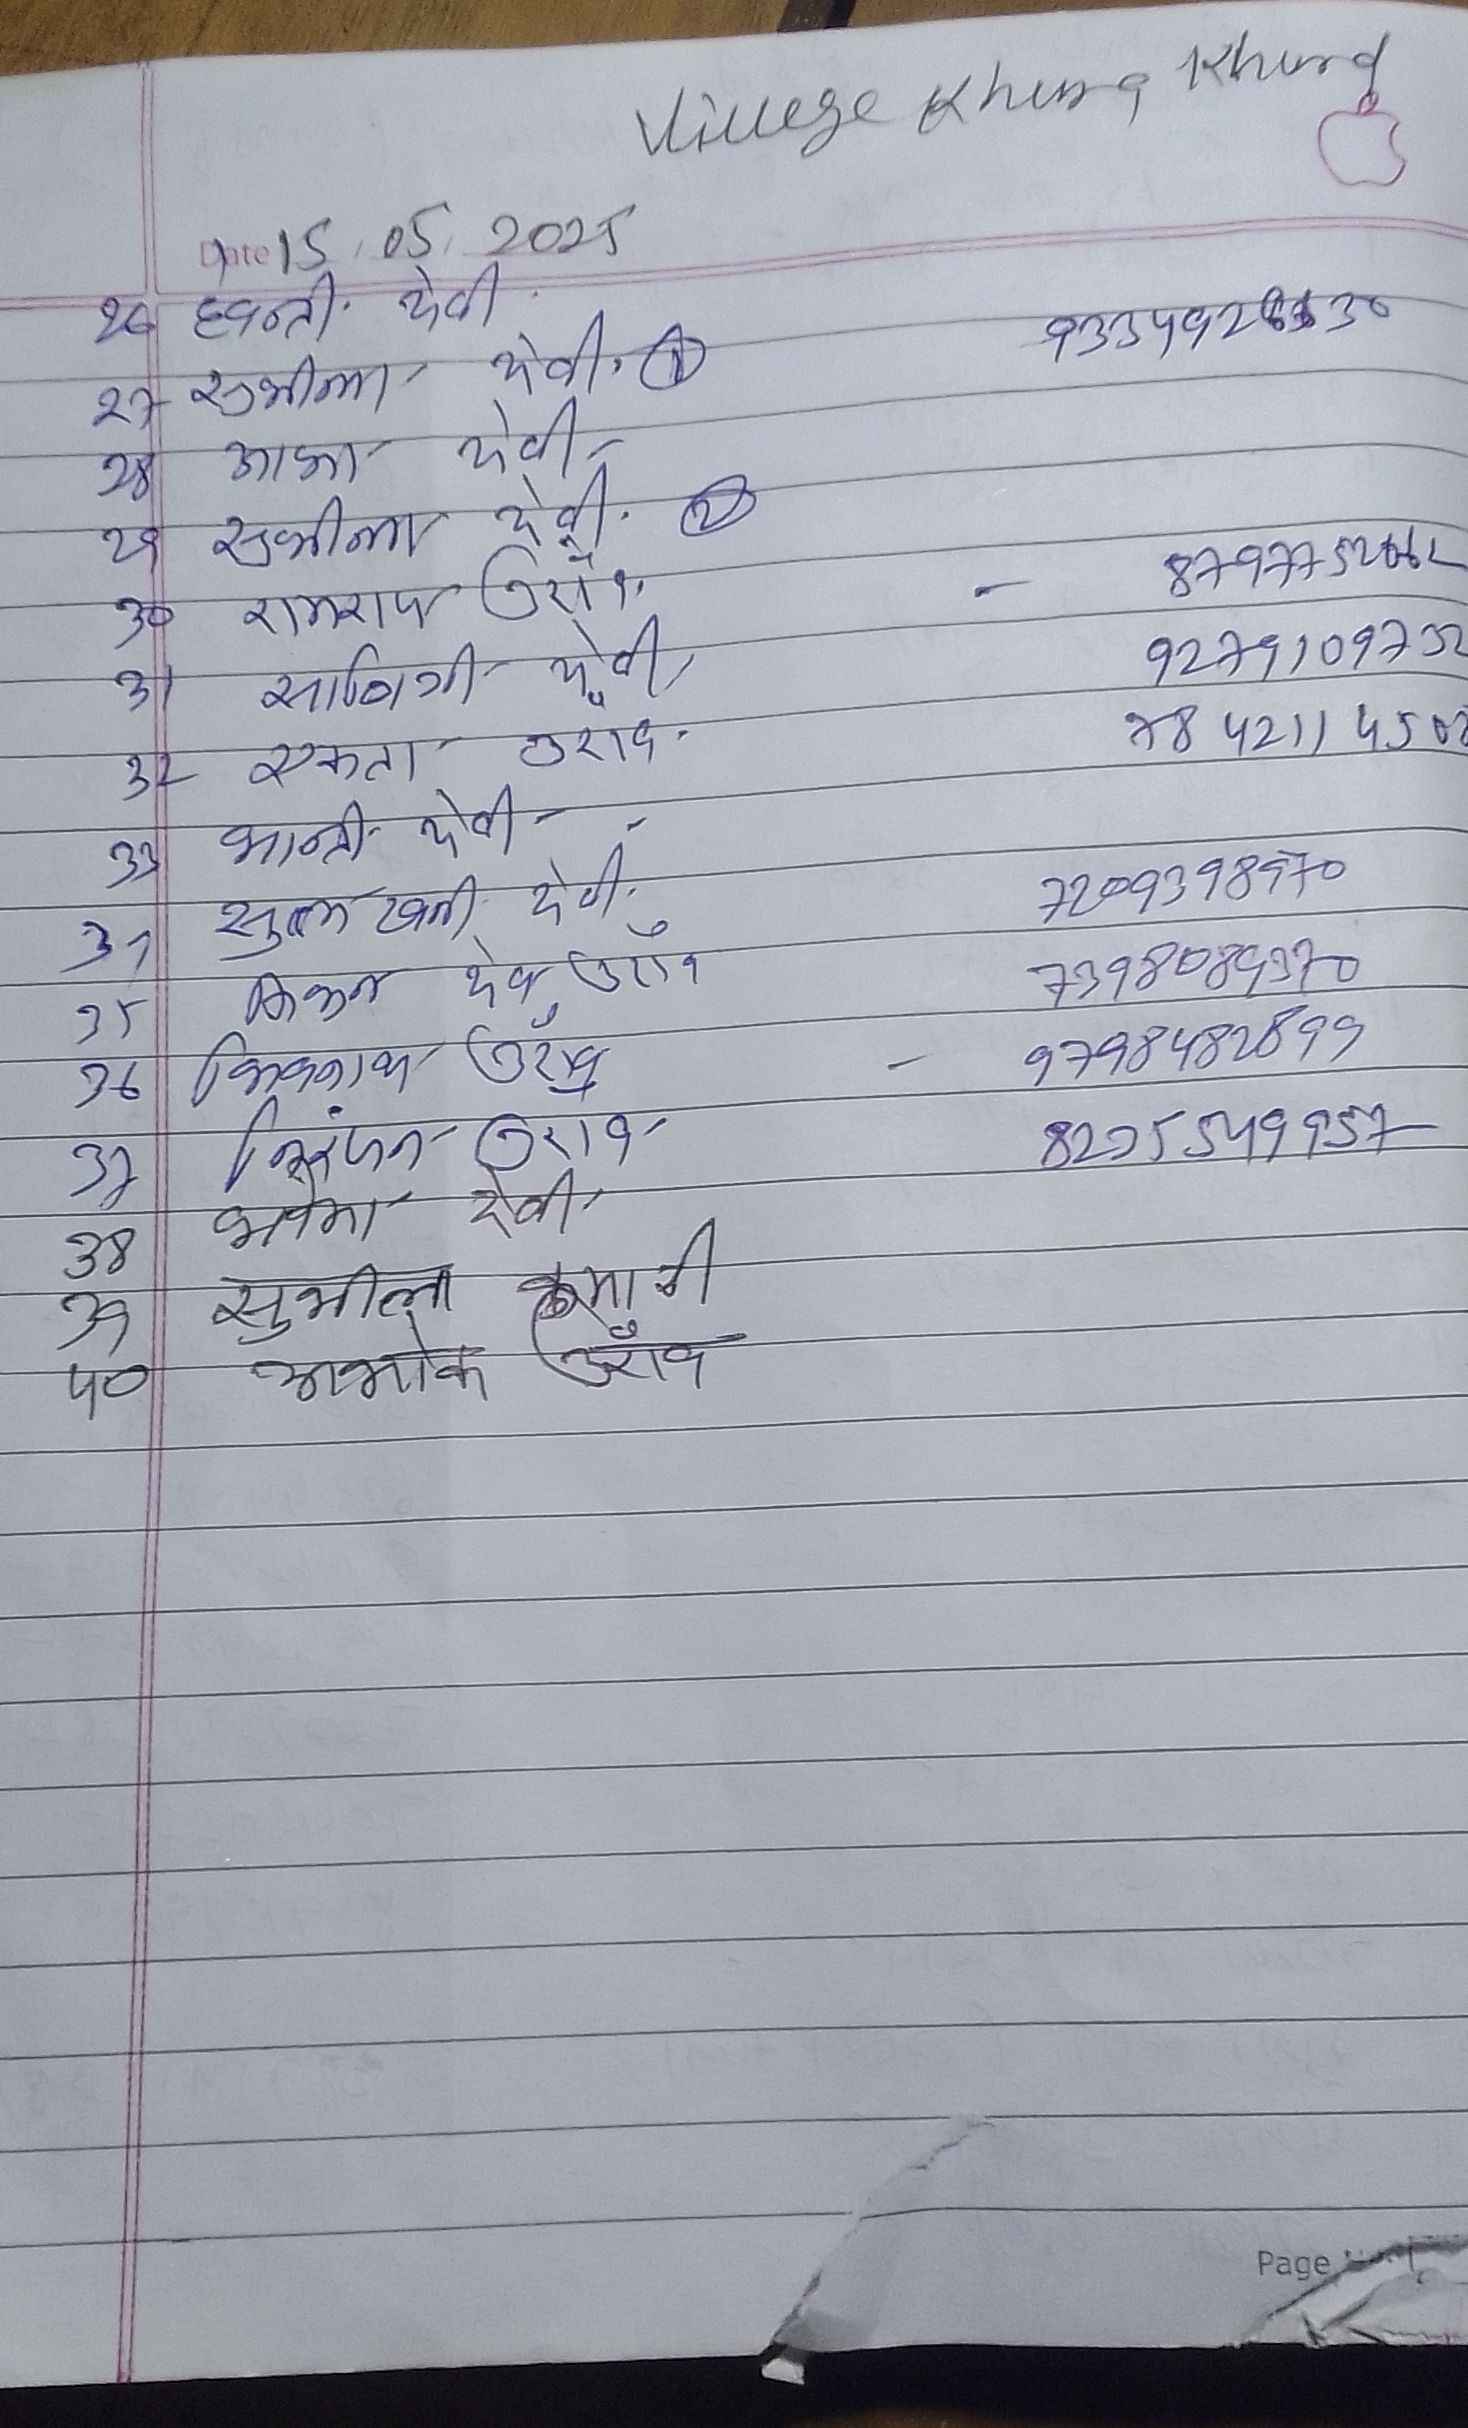 Village Khura Khurd
Date 15.05.2025
26 हवन्ती देवी
27 सुशीला देवी. ① 9334928630
28 आशा देवी
29 सुशीला देवी. ②
30 रामराय उराँव. - 8797752662
31 सावित्री देवी 9279109732
32 एकता उराँव. 7842114502
33 शान्ती देवी -
34 देवी. 7209398970
35 देव उराँव 7398089370
36 उराँव - 9798482899
37 उराव 8225549957
38 देवी
39 सुशीला कुमारी
40 अशोक उराँव
Page